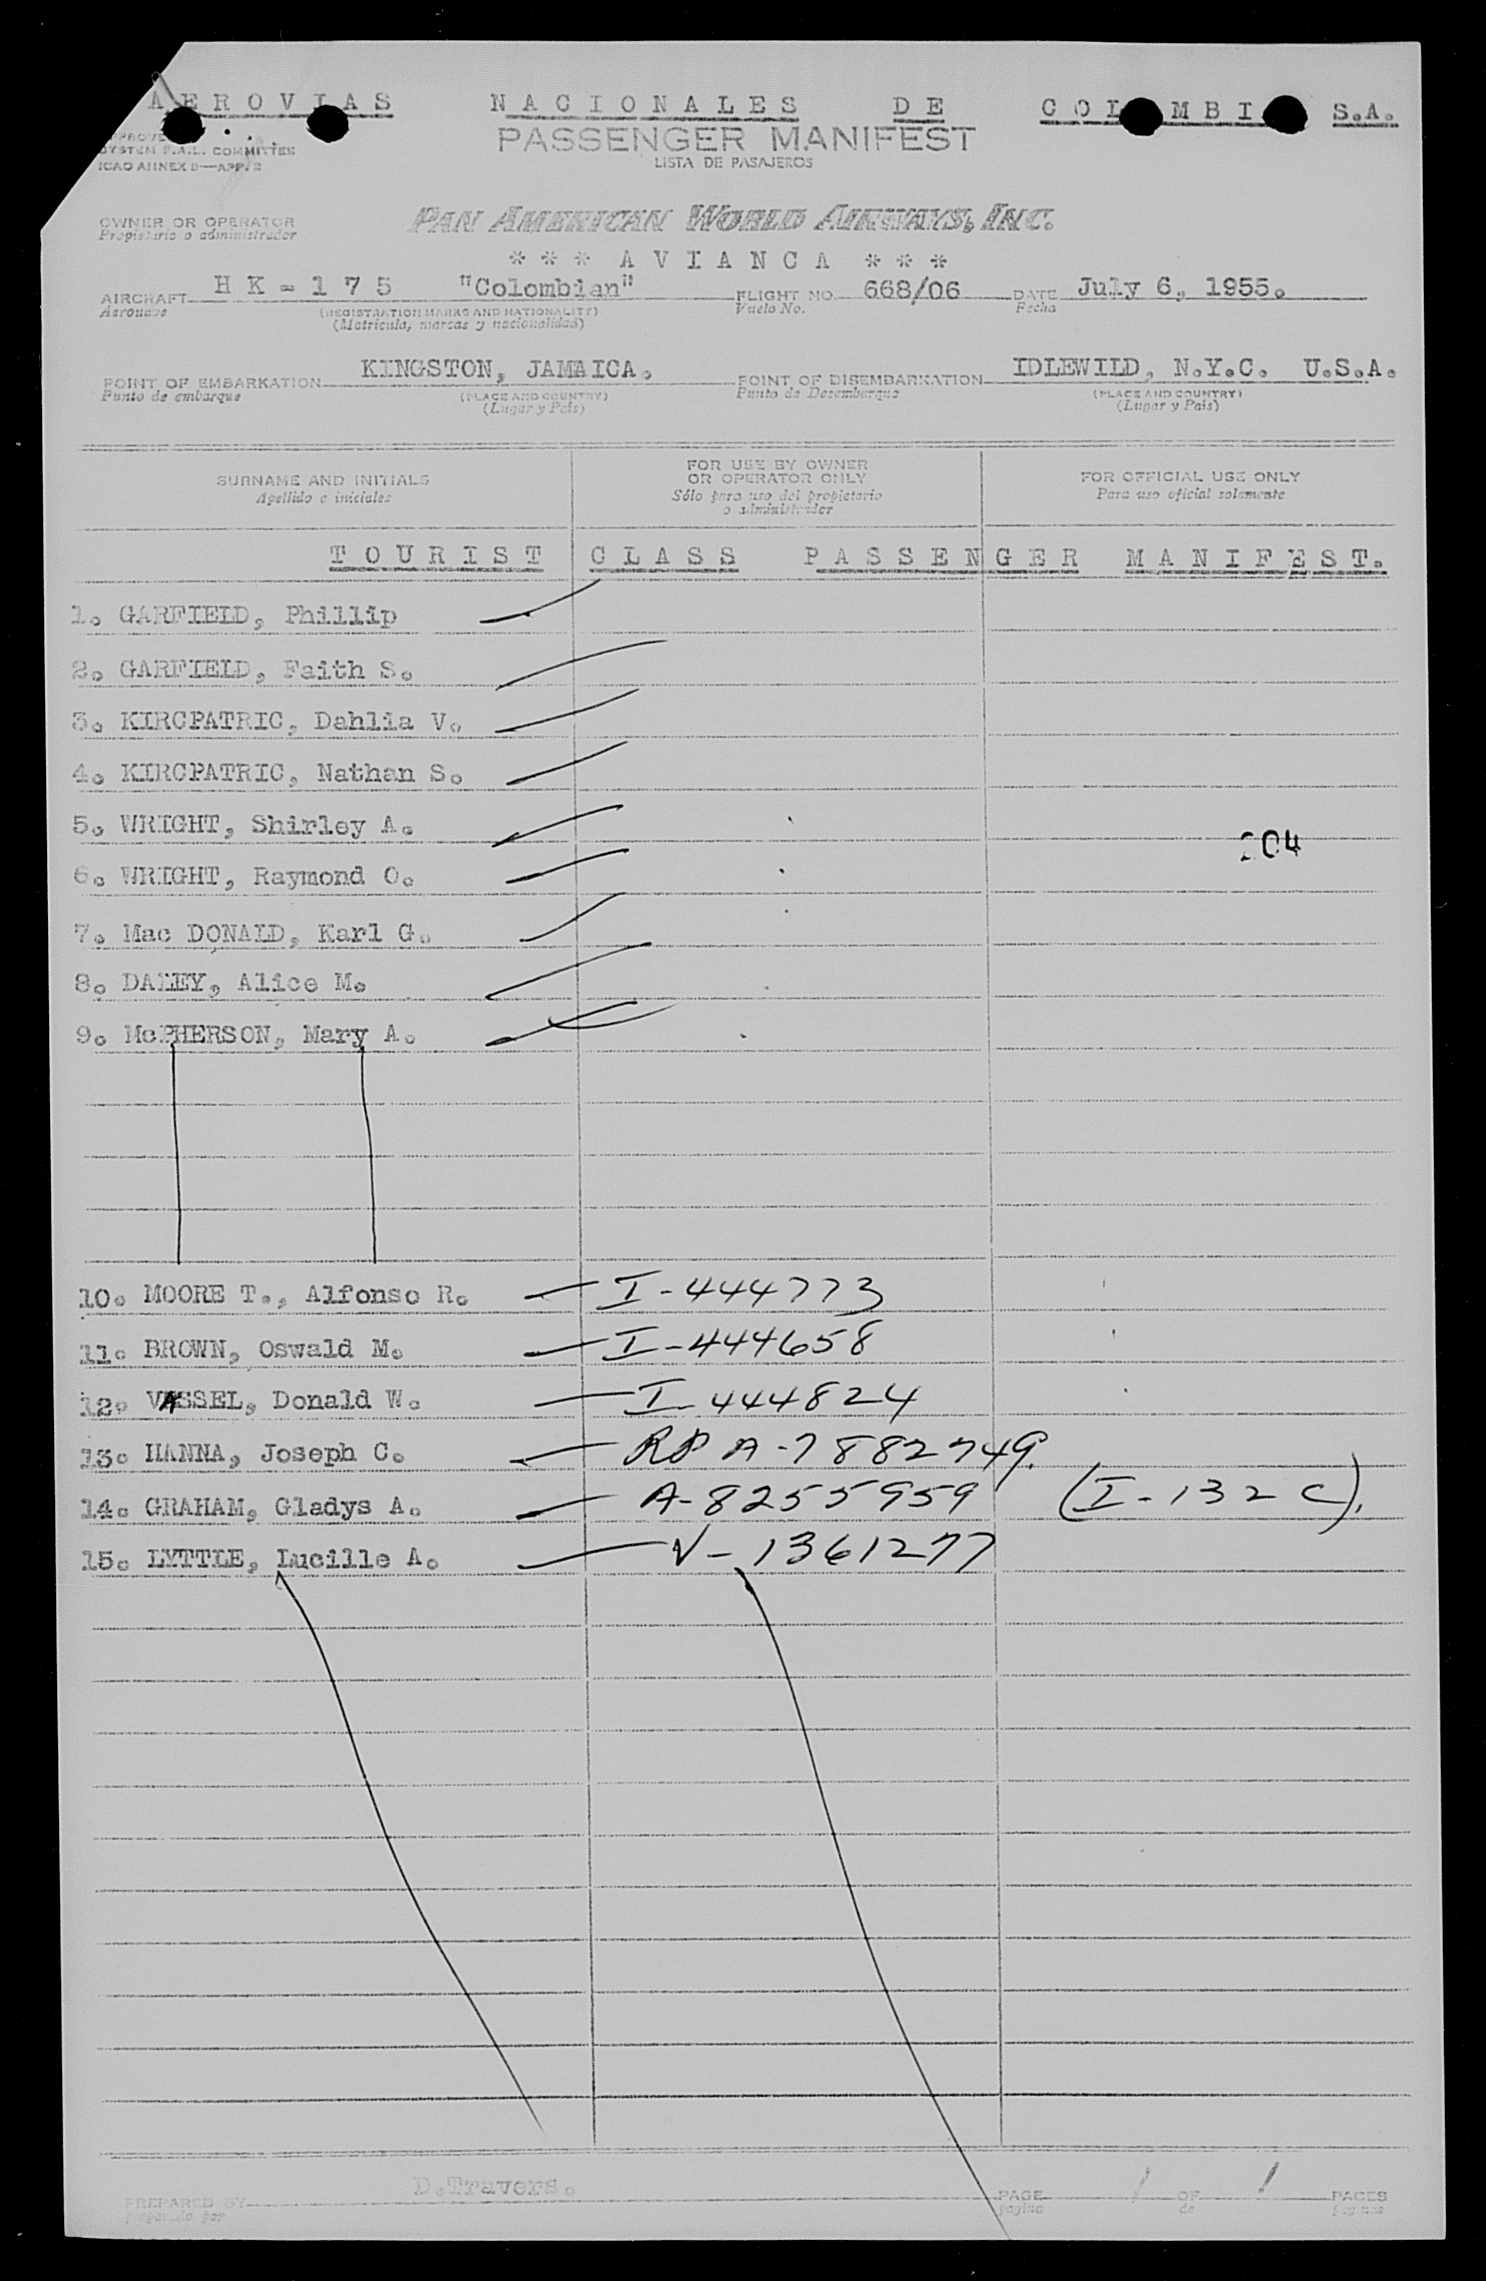 AEROVIAS NACIONALES DE COLOMBIA S.A.
PASSENGER MANIFEST
LISTA DE PASAJEROS
SYSTEM F.A.L. COMMITTEE
ICAO ANNEX 9—APP. 2
OWNER OR OPERATOR
Propietario o administrador
PAN AMERICAN WORLD AIRWAYS, INC.
* * * AVIANCA * * *
AIRCRAFT HK-175 "Colombian" FLIGHT NO. 668/06 DATE July 6, 1955.
Aeronave (REGISTRATION MARKS AND NATIONALITY) Vuelo No. Fecha
(Matrícula, marcas y nacionalidad)
POINT OF EMBARKATION KINGSTON, JAMAICA. POINT OF DISEMBARKATION IDLEWILD, N.Y.C. U.S.A.
Punto de embarque (PLACE AND COUNTRY) Punto de Desembarque (PLACE AND COUNTRY)
(Lugar y País) (Lugar y País)
SURNAME AND INITIALS
Apellido e iniciales
FOR USE BY OWNER
OR OPERATOR ONLY
Sólo para uso del propietario
o administrador
FOR OFFICIAL USE ONLY
Para uso oficial solamente
TOURIST CLASS PASSENGER MANIFEST.
1. GARFIELD, Phillip
2. GARFIELD, Faith S.
3. KIRCPATRIC, Dahlia V.
4. KIRCPATRIC, Nathan S.
5. WRIGHT, Shirley A.
204
6. WRIGHT, Raymond O.
7. Mac DONALD, Karl G.
8. DALEY, Alice M.
9. McPHERSON, Mary A.
10. MOORE T., Alfonso R. I-444773
11. BROWN, Oswald M. I-444658
12. VASSEL, Donald W. I-444824
13. HANNA, Joseph C. RP A-7882749.
14. GRAHAM, Gladys A. A-8255959 (I-132 C).
15. LYTTLE, Lucille A. V-1361277
D.Travers.
PREPARED BY PAGE 1 OF 1 PAGES
preparado por página de páginas